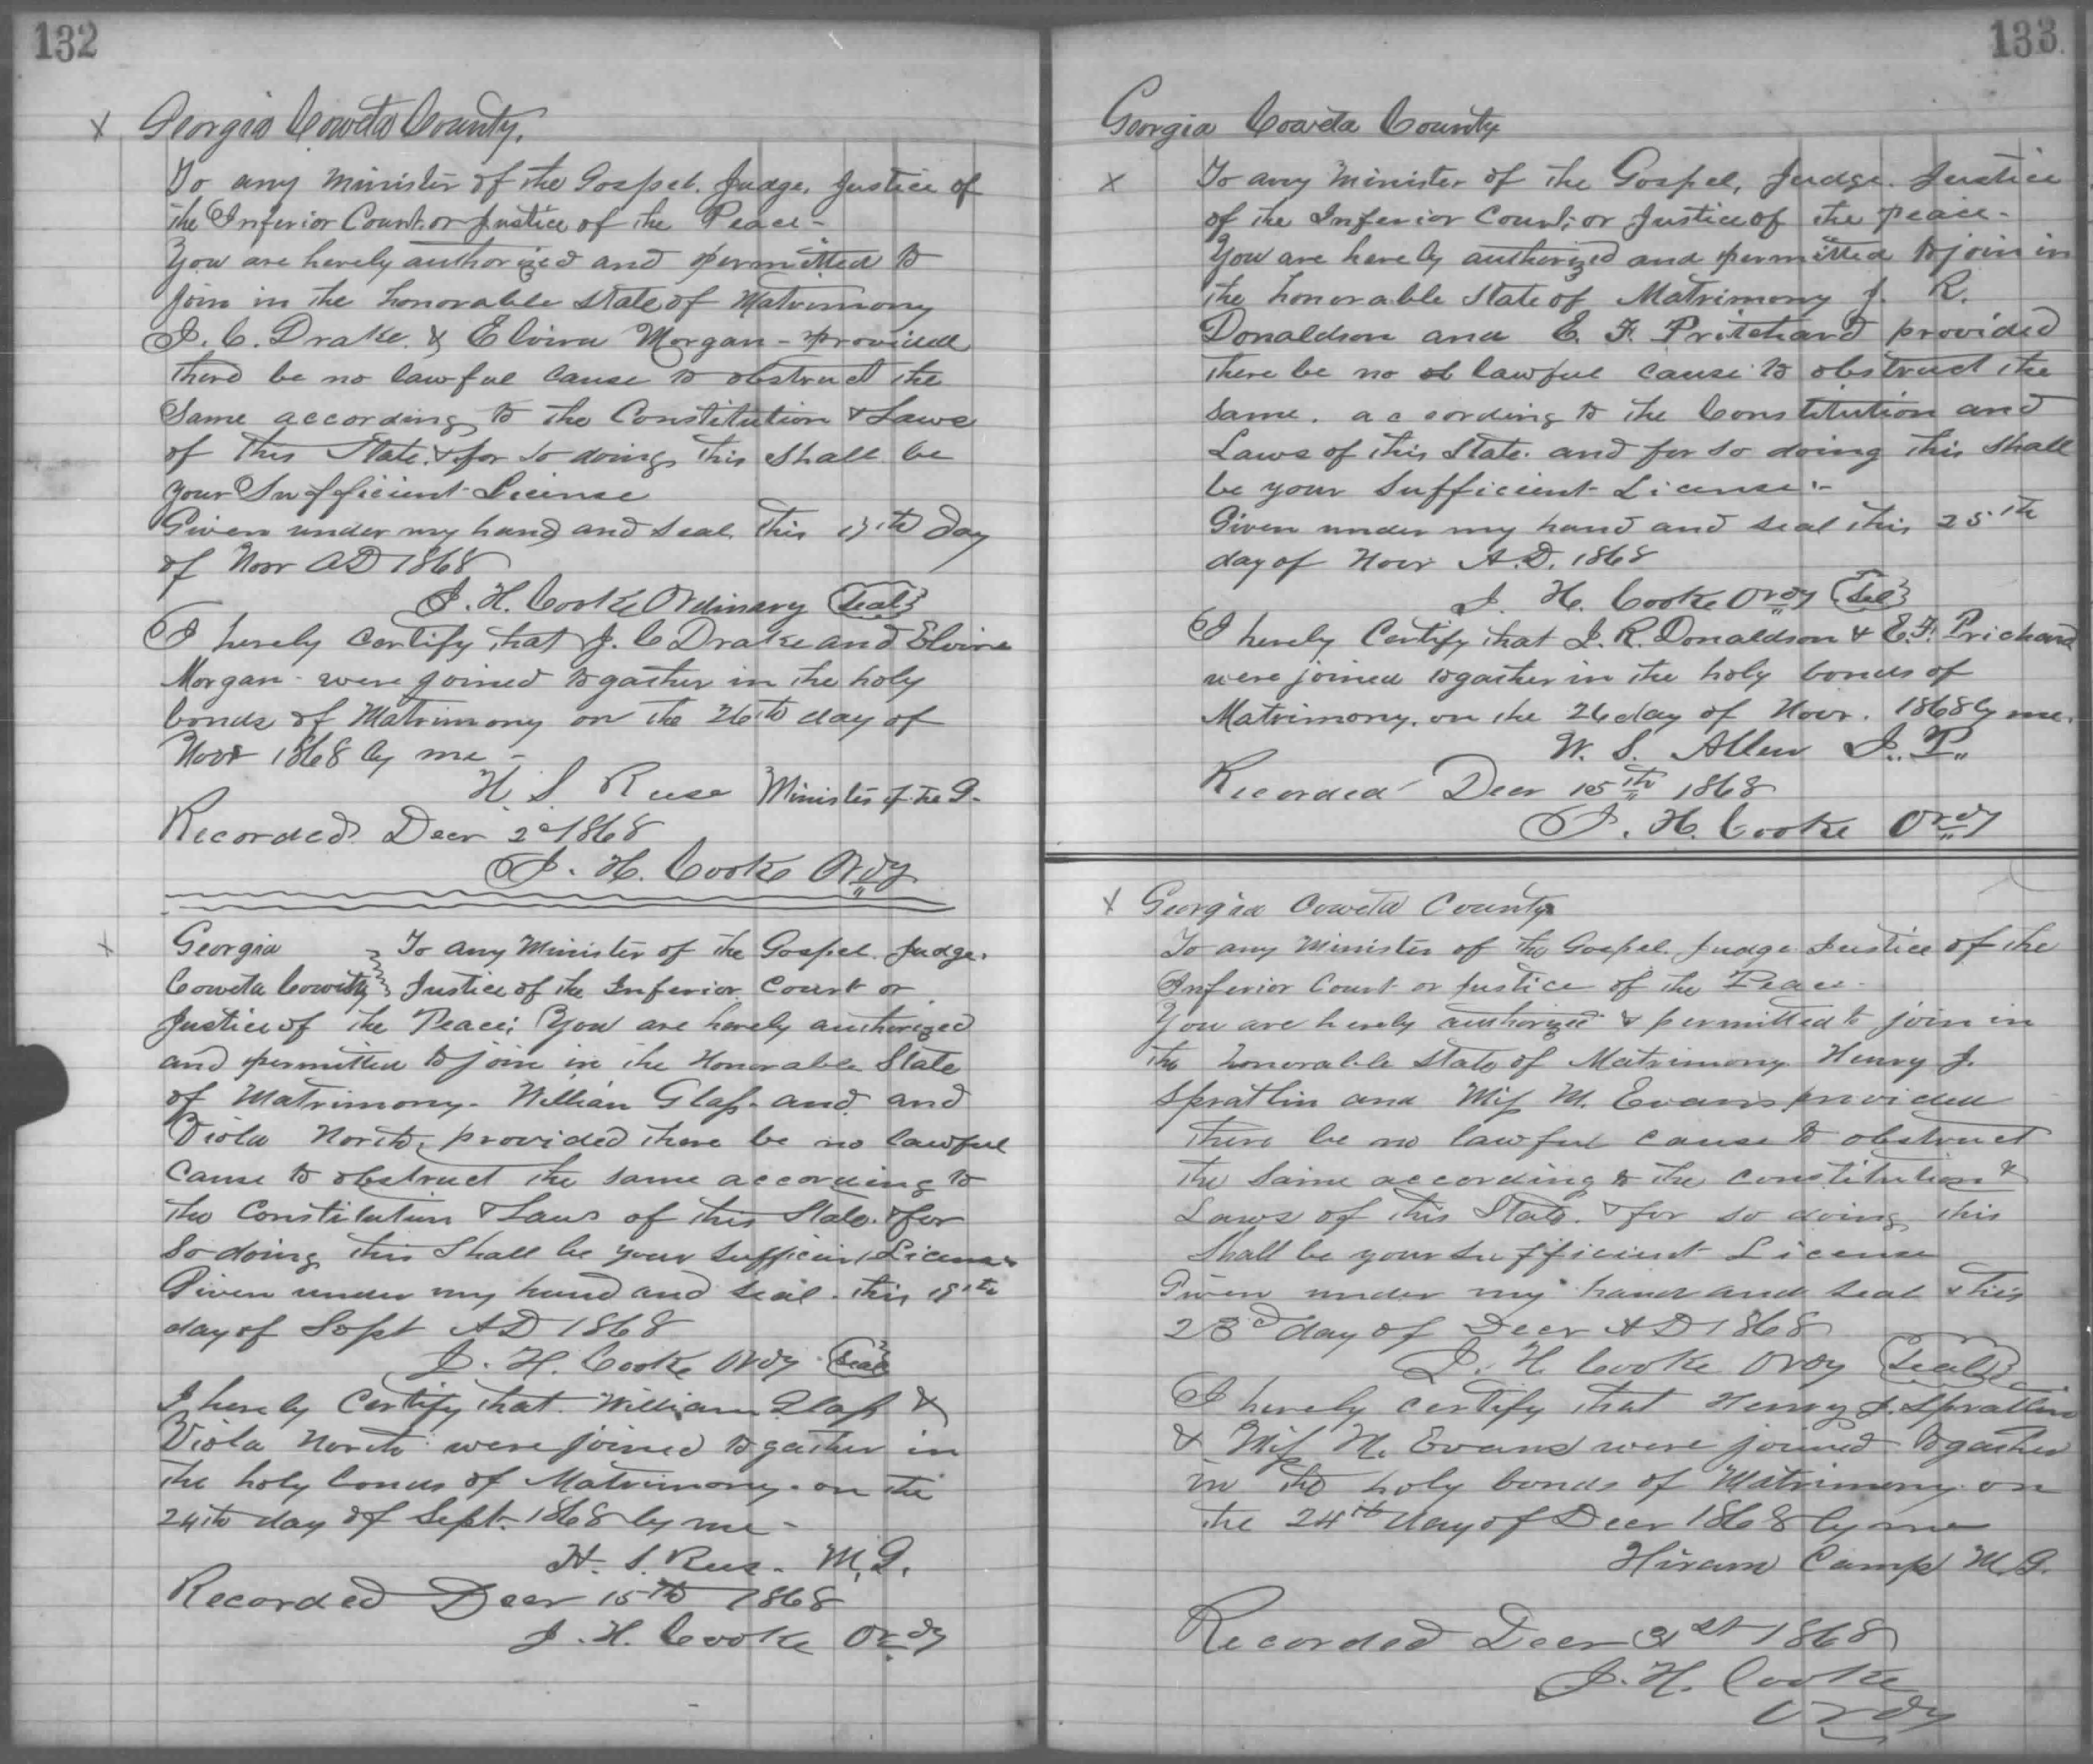 132
Georgia Coweta County.
To any Minister of the Gospel. Judge. Justice of
the Inferior Court or Justice of the Peace-
You are hereby authorized and permitted to
join in the honorable state of Matrimony
J. C. Drake. & Elvira Morgan - provided
there be no lawful cause to obstruct the
Same according to the Constitution & Laws
of this State. & for so doing this shall be
your Sufficient License
Given under my hand and seal this 17th day
of Novr AD 1868
J. H. Cooke Ordinary (Seal)
I hereby certify that J. C Drake and Elvira
Morgan were joined togather in the holy
bonds of Matrimony on the 26th day of
Novr 1868 by me -
H. S. Rees Minister of the G.
Recorded Decr 2d 1868
J. H. Cooke Ordy
Georgia To any Minister of the Gospel. Judge.
Coweta County Justice of the Inferior Court or
Justice of the Peace; You are hereby authorized
and permitted to join in the Honorable State
of Matrimony- William Glass and and
Viola North, provided there be no lawful
cause to obstruct the same according to
the Constitution & Laws of this State. & for
So doing this Shall be your sufficient License
Given under my hand and seal. this 18th
day of Sept AD 1868
J. H. Cooke Ordy (Seal)
I hereby Certify that William Glass &
Viola North were joined togather in
the holy bonds of Matrimony. on the
24th day of Sept. 1868 by me -
H. S. Rees. M. G.
Recorded Decr 15th 1868
J. H. Cooke Ordy
133
Georgia Coweta County
To any Minister of the Gospel, Judge. Justice
of the Inferior Court; or Justice of the peace-
You are hereby authorized and permitted to join in
the honorable State of Matrimony J. R.
Donaldson and E. F. Pritchard provided
there be no ob lawful cause to obstruct the
same. according to the Constitution and
Laws of this State. and for so doing this shall
be your Sufficient License.-
Given under my hand and seal this 25th
day of Novr A.D. 1868
J. H. Cooke Ordy (Seal)
I hereby Certify that J. R. Donaldson & E. F. Prichard
were joined togather in the holy bonds of
Matrimony. on the 26 day of Novr. 1868 by me.
W. S. Allen J. P.
Recorded Decr 15th 1868
J. H. Cooke Ordy
Georgia Coweta County
To any Minister of the Gospel. Judge Justice of the
Inferior Court or Justice of the Peace-
You are hereby authorized & permitted to join in
the honorable state of Matrimony. Henry J.
Spratlin and Miss M. Evans provided
there be no lawful cause to obstruct
the same according to the constitution &
Laws of this State. & for so doing this
Shall be your Sufficient License
Given under my hand and seal this
23d day of Decr AD 1868
J. H. Cooke Ordy (Seal)
I hereby certify that Henry J. Spratlin
& Miss M. Evans were joined togather
in the holy bonds of Matrimony on
the 24th day of Decr 1868 by me
Hiram Camp M. G.
Recorded Decr 31st 1868
J. H. Cooke
Ordy